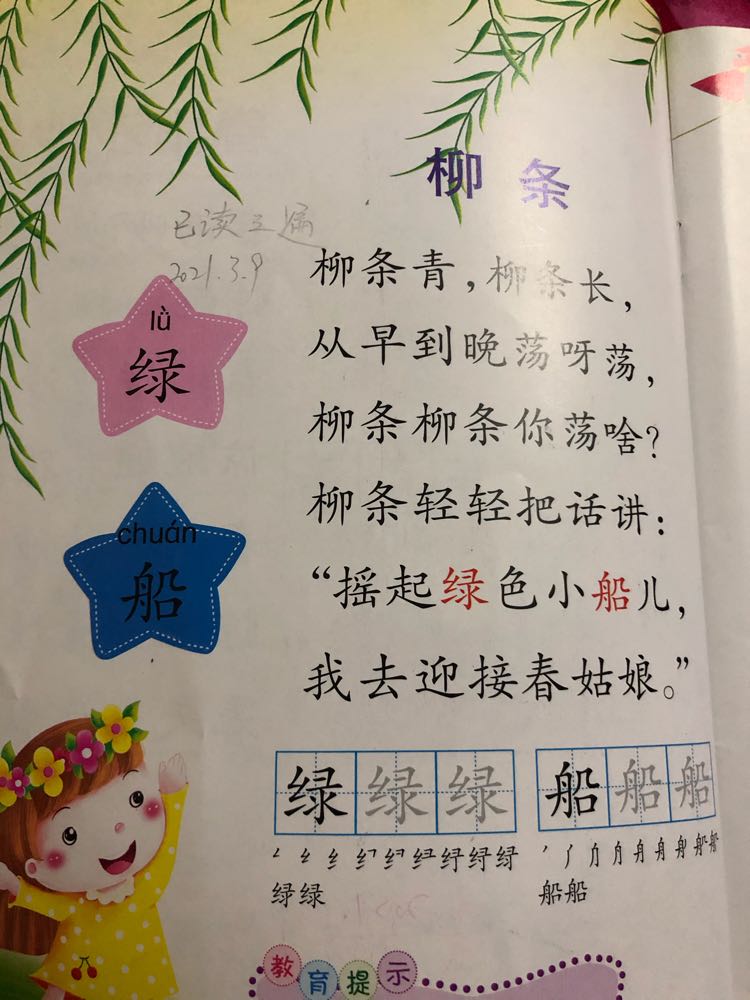 柳条
已读三遍
2021.3.9
柳条青，柳条长，
从早到晚荡呀荡，
柳条柳条你荡啥？
柳条轻轻把话讲：
“摇起绿色小船儿，
我去迎接春姑娘。”
lǜ
绿
chuán
船
绿绿绿
船船船
绿绿
船船
教育提示